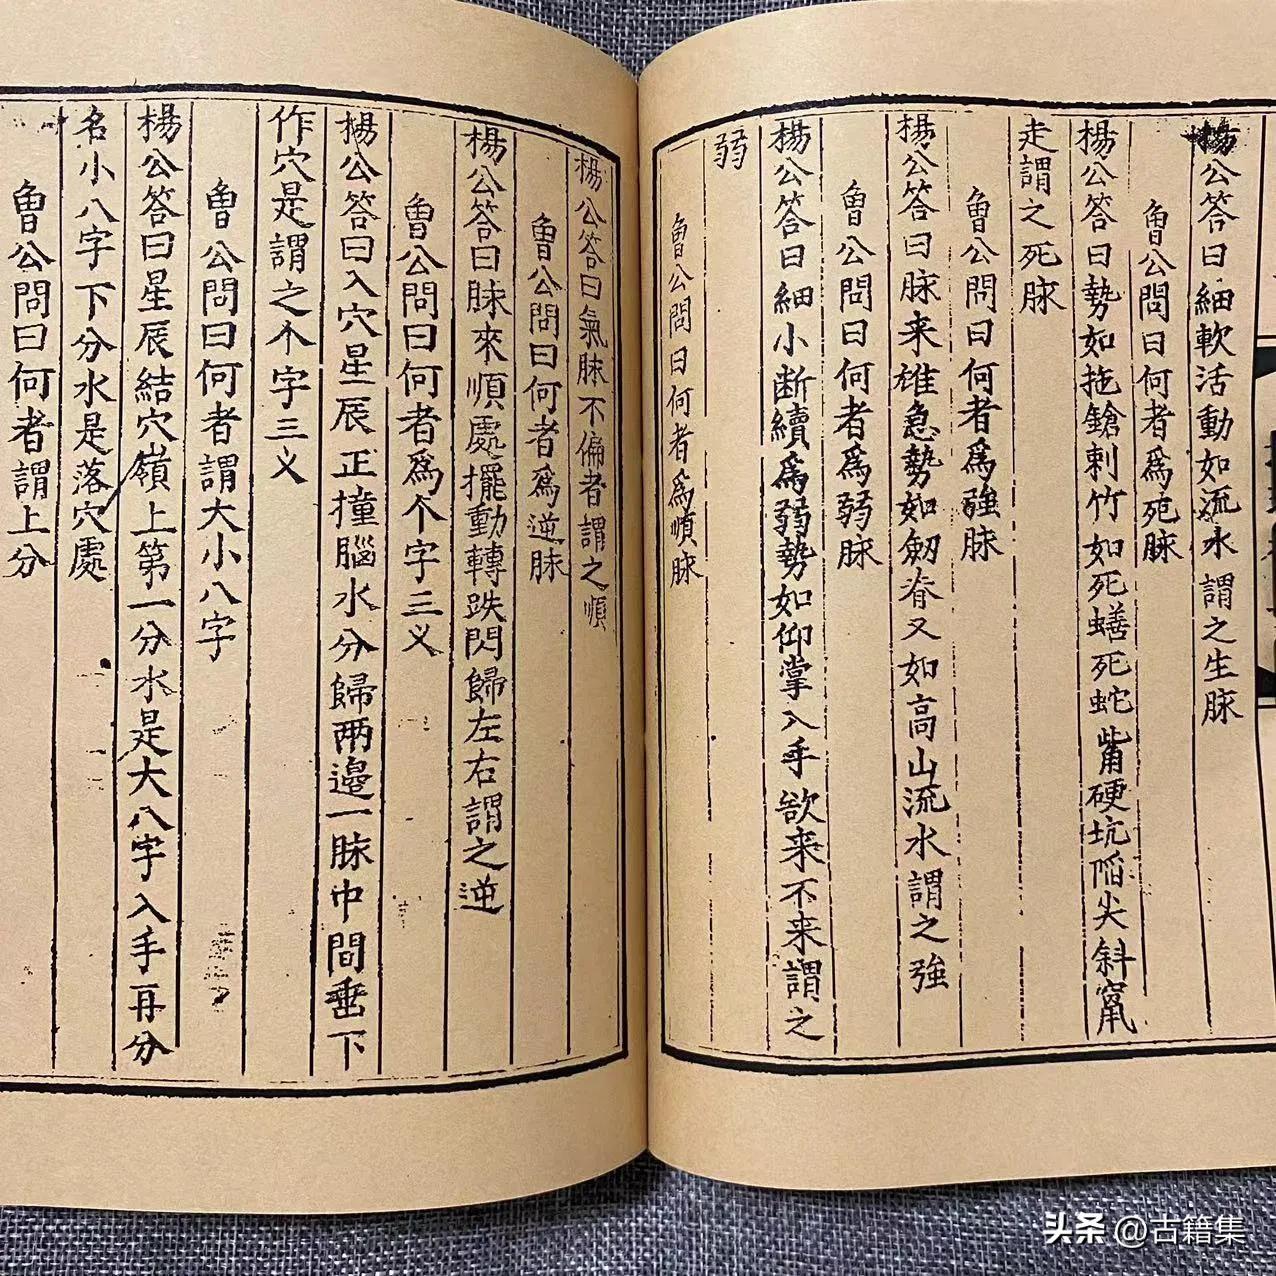 楊公答曰細軟活動如流水謂之生脉
魯公問曰何者爲死脉
楊公答曰勢如拖鎗刺竹如死蟮死蛇觜硬坑陷尖斜竄
走謂之死脉
魯公問曰何者爲強脉
楊公答曰脉来雄急勢如劒脊又如高山流水謂之強
魯公問曰何者爲弱脉
楊公答曰細小断續爲弱勢如仰掌入手欲来不来謂之
弱
魯公問曰何者爲順脉
楊公答曰氣脉不偏者謂之順
魯公問曰何者爲逆脉
楊公答曰脉來順處擺動轉跌閃歸左右謂之逆
魯公問曰何者爲个字三义
楊公答曰入穴星辰正撞腦水分歸兩邉一脉中間垂下
作穴是謂之个字三义
魯公問曰何者謂大小八字
楊公答曰星辰結穴嶺上第一分水是大八字入手再分
名小八字下分水是落穴處
魯公問曰何者謂上分
头条 @古籍集